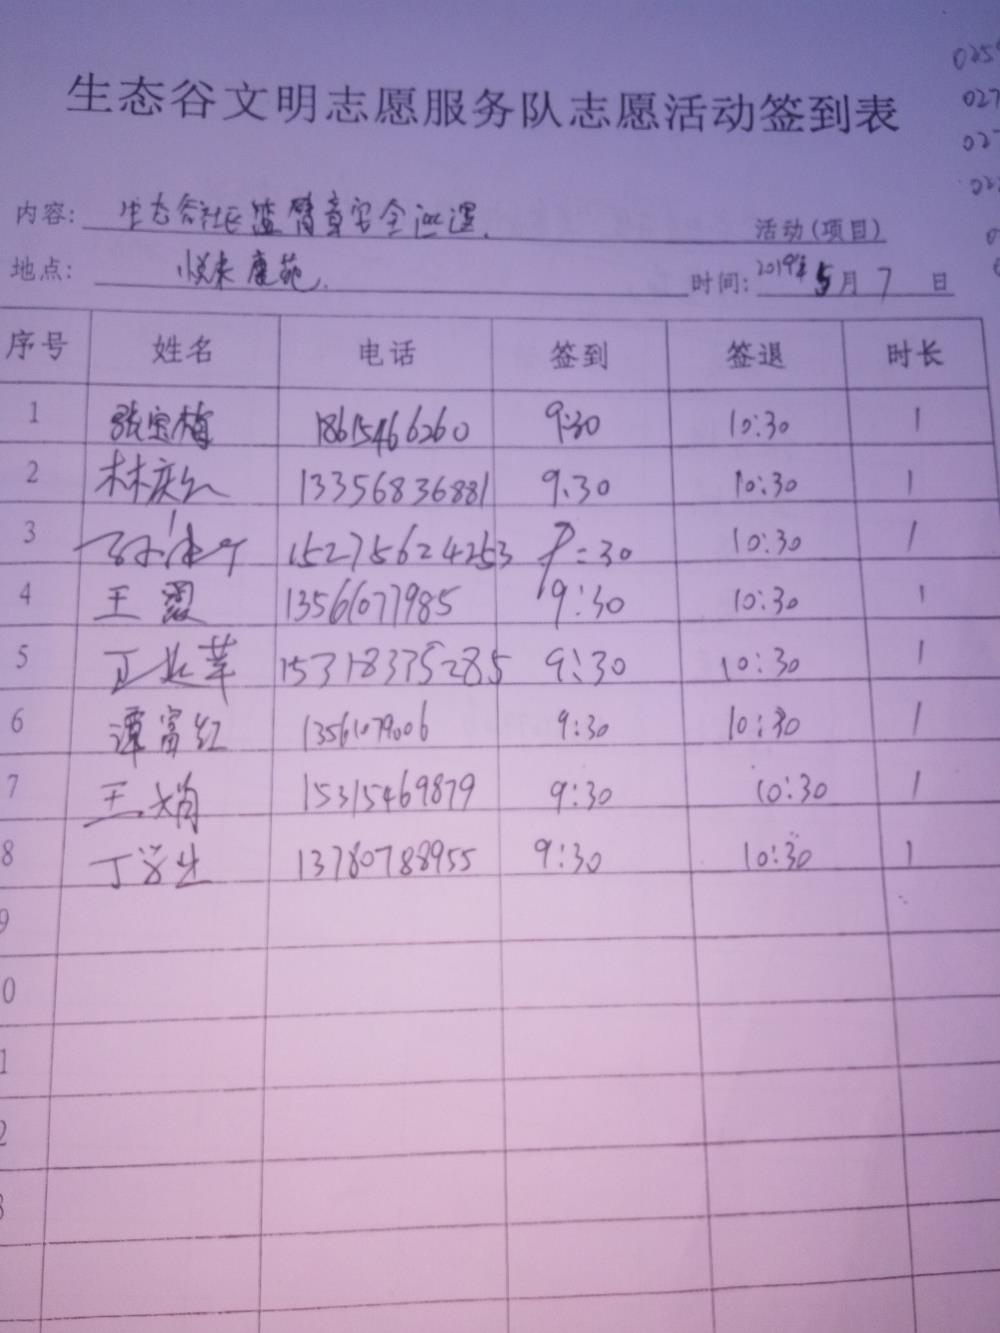 生态谷文明志愿服务队志愿活动签到表
内容: 生态谷社区蓝臂章安全巡逻. 活动(项目)
地点: 悦来鹿苑. 时间: 2019年 5月 7 日
序号 姓名 电话 签到 签退 时长
1 张宝梅 18615466260 9:30 10:30 1
2 林庆 13356836881 9:30 10:30 1
3 15275624253 9:30 10:30 1
4 王 13561077985 9:30 10:30 1
5 15318375285 9:30 10:30 1
6 谭富红 13561079006 9:30 10:30 1
7 王娟 15315469879 9:30 10:30 1
8 丁学生 13780788955 9:30 10:30 1
9
0
1
2
3
025
027
02
02
0